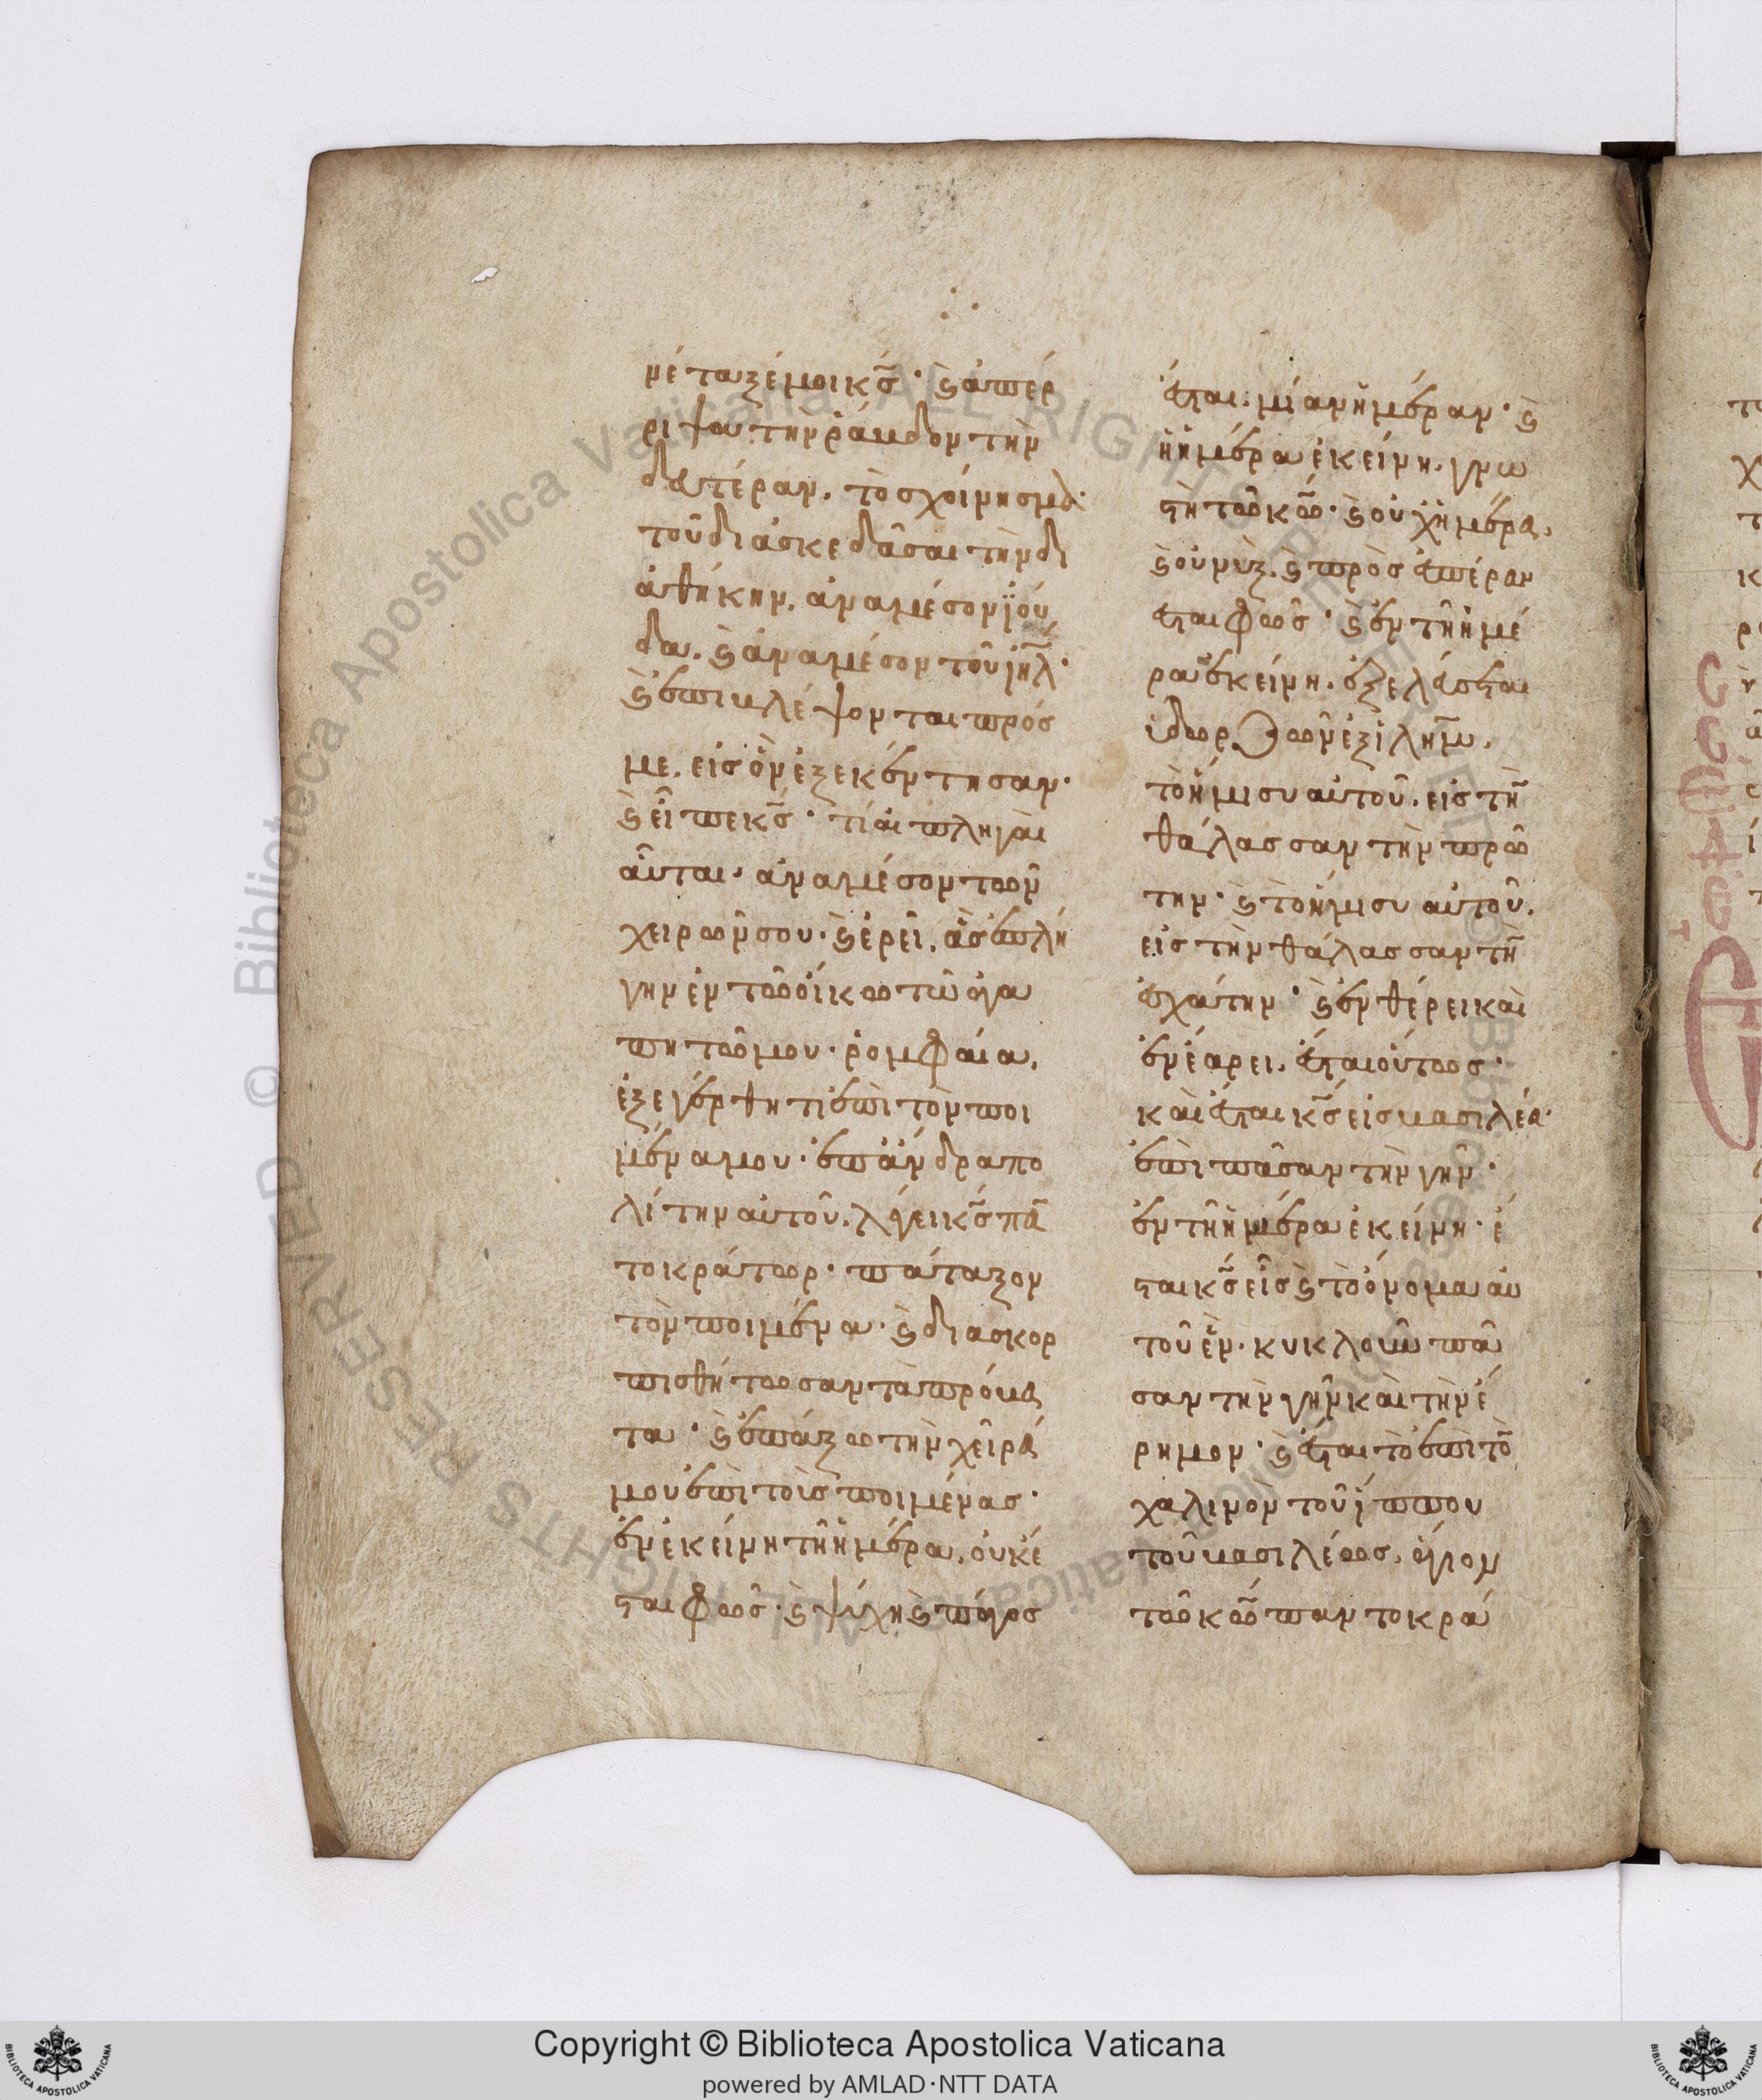 νέταξέ μοι κ̅ς̅· ϗ ἀπέρ
ριψα τὴν ράβδον τὴν
δευτέραν. τὸ σχοίνησμα·
τοῦ διασκεδάσαι τὴν δι
αθήκην. ἀναμέσον ϊού
δα. ϗ ἀναμέσον τοῦ ι̅η̅λ̅·
ϗ ἐπιβλέψονται πρός
με. εἰς ὃν ἐξεκέντησαν·
ϗ εἶπε κ̅ς̅· τί αἱ πληγαὶ
αὗται. ἀναμέσον τῶν
χειρῶν σου· ϗ ἐρεῖ. ἃς ἐπλή
γην ἐν τῶ οίκω τῶ ἀγα
πητῶ μου· ρομφαία.
ἐξεγέρθητι ἐπὶ τὸν ποι
μένα μου· ἐπ ἄνδρα πο
λίτην αὐτοῦ. λέγει κ̅ς̅ πα̅
τοκράτωρ· πάταξον
τὸν ποιμένα· ϗ διασκορ
πισθήτωσαν τὰ πρόβα
τα· ϗ ἐπάξω τὴν χεῖρά
μου ἐπὶ τοὺς ποιμένας·
ἐν ἐκείνη τῆ ἡμέρα. οὐκ έ
σται φῶς· ϗ ψύχη ϗ πάγος
έσται· μίαν ἡμέραν· ϗ
ἡ ἡμέρα ἐκείνη. γνω
στὴ τῶ κ̅ω̅· ϗ οὐχ ἡμέρα.
ϗ οὐ νὺξ. ϗ πρὸς ἑσπέραν
έσται φῶς· ϗ ἐν τῆ ἡμέ
ρα ἐκείνη. ἐξελεύσεται
ὕδωρ ζῶν ἐξ ι̅λ̅η̅μ̅.
τὸ ήμισυ αὐτοῦ. εἰς τὴ̅
θάλασσαν τὴν πρώ
την· ϗ τὸ ήμισυ αὐτοῦ.
εἰς τὴν θάλασσαν τὴ̅
ἐσχάτην· ϗ ἐν θέρει καὶ
ἐν έαρει. έσται ούτως·
καὶ έσται κ̅ς̅ εἰς βασιλέα·
ἐπὶ πᾶσαν τὴν γῆν·
ἐν τῆ ἡμέρα ἐκείνη· έ
σται κ̅ς̅ εἷς ϗ τὸ όνομα αὐ
τοῦ ἓν. κυκλοῦν πᾶ
σαν τὴν γῆν καὶ τὴν έ
ρημον· ϗ έσται τὸ ἐπὶ τὸ̅
χαλινὸν τοῦ ί̈ππου
τοῦ βασιλέως. άγιον
τῶ κ̅ω̅ παντοκρά
Copyright © Biblioteca Apostolica Vaticana
powered by AMLAD·NTT DATA